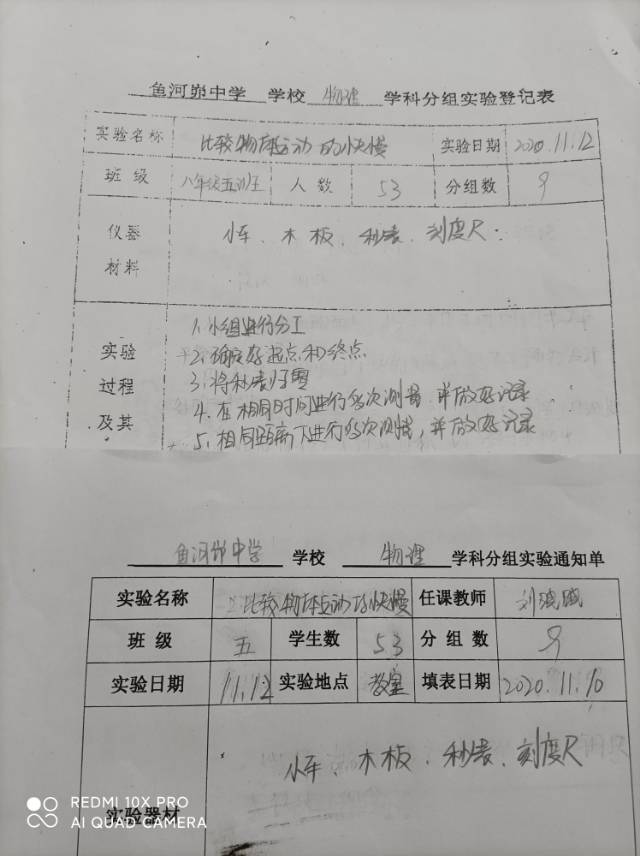 鱼河峁中学 学校 物理 学科分组实验登记表
实验名称 比较物体运动的快慢 实验日期 2020.11.12
班级 八年级五班 人数 53 分组数 9
仪器材料 小车、木板、秒表、刻度尺
实验过程及其
1、小组进行分工
2、确定好起点和终点
3、将秒表归零
4、在相同时间进行多次测量,并做好记录
5、相同距离下进行多次测量,并做好记录
鱼河峁中学 学校 物理 学科分组实验通知单
实验名称 比较物体运动的快慢 任课教师 刘
班级 五 学生数 53 分组数 9
实验日期 11.12 实验地点 教室 填表日期 2020.11.10
实验器材 小车、木板、秒表、刻度尺
REDMI 10X PRO
AI QUAD CAMERA